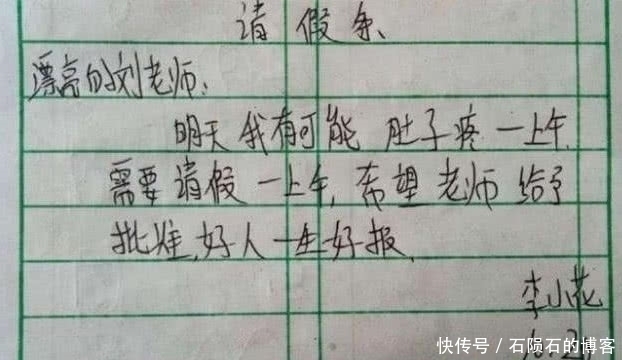 请假条
漂亮的刘老师：
明天我有可能肚子疼一上午
需要请假一上午，希望老师给予
批准，好人一生好报，
李小花
快传号／石陨石的博客